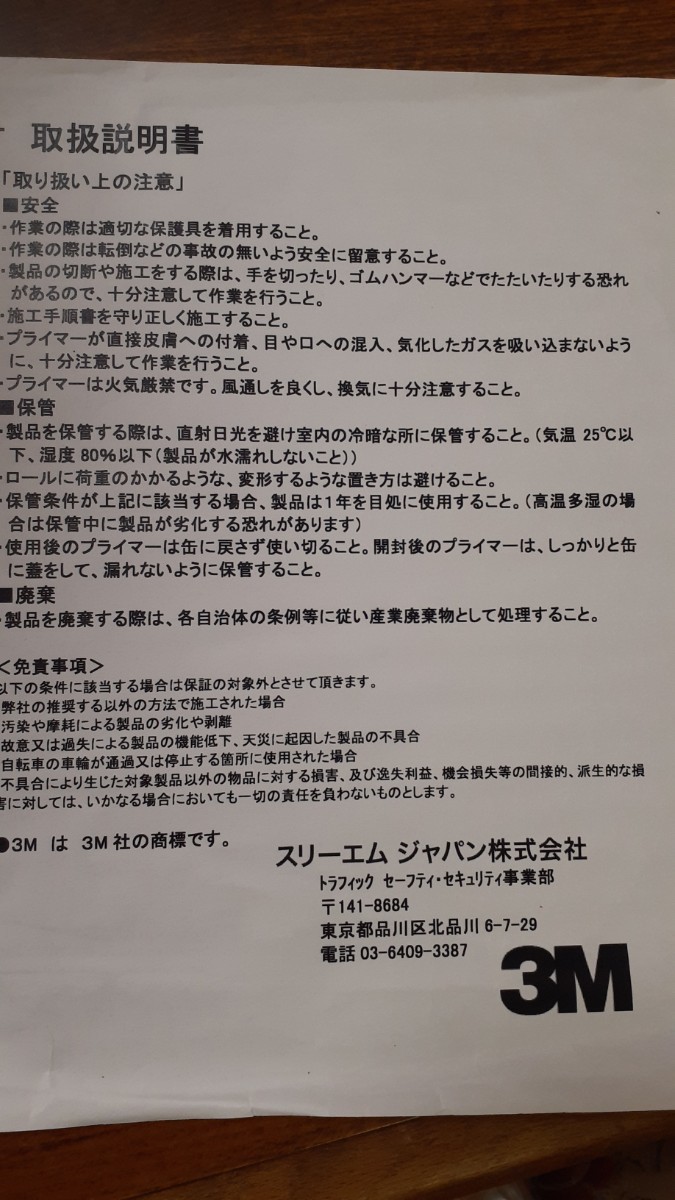 取扱説明書
「取り扱い上の注意」
■安全
・作業の際は適切な保護具を着用すること。
・作業の際は転倒などの事故の無いよう安全に留意すること。
・製品の切断や施工をする際は、手を切ったり、ゴムハンマーなどでたたいたりする恐れ
があるので、十分注意して作業を行うこと。
・施工手順書を守り正しく施工すること。
・プライマーが直接皮膚への付着、目や口への混入、気化したガスを吸い込まないよう
に、十分注意して作業を行うこと。
・プライマーは火気厳禁です。風通しを良くし、換気に十分注意すること。
■保管
・製品を保管する際は、直射日光を避け室内の冷暗な所に保管すること。(気温 25℃以
下、湿度 80%以下(製品が水濡れしないこと))
・ロールに荷重のかかるような、変形するような置き方は避けること。
・保管条件が上記に該当する場合、製品は1年を目処に使用すること。(高温多湿の場
合は保管中に製品が劣化する恐れがあります)
・使用後のプライマーは缶に戻さず使い切ること。開封後のプライマーは、しっかりと缶
に蓋をして、漏れないように保管すること。
■廃棄
・製品を廃棄する際は、各自治体の条例等に従い産業廃棄物として処理すること。
＜免責事項＞
以下の条件に該当する場合は保証の対象外とさせて頂きます。
弊社の推奨する以外の方法で施工された場合
汚染や摩耗による製品の劣化や剥離
故意又は過失による製品の機能低下、天災に起因した製品の不具合
自転車の車輪が通過又は停止する箇所に使用された場合
不具合により生じた対象製品以外の物品に対する損害、及び逸失利益、機会損失等の間接的、派生的な損
害に対しては、いかなる場合においても一切の責任を負わないものとします。
●3M は 3M 社の商標です。
スリーエム ジャパン株式会社
トラフィック セーフティ・セキュリティ事業部
〒141-8684
東京都品川区北品川 6-7-29
電話 03-6409-3387
3M